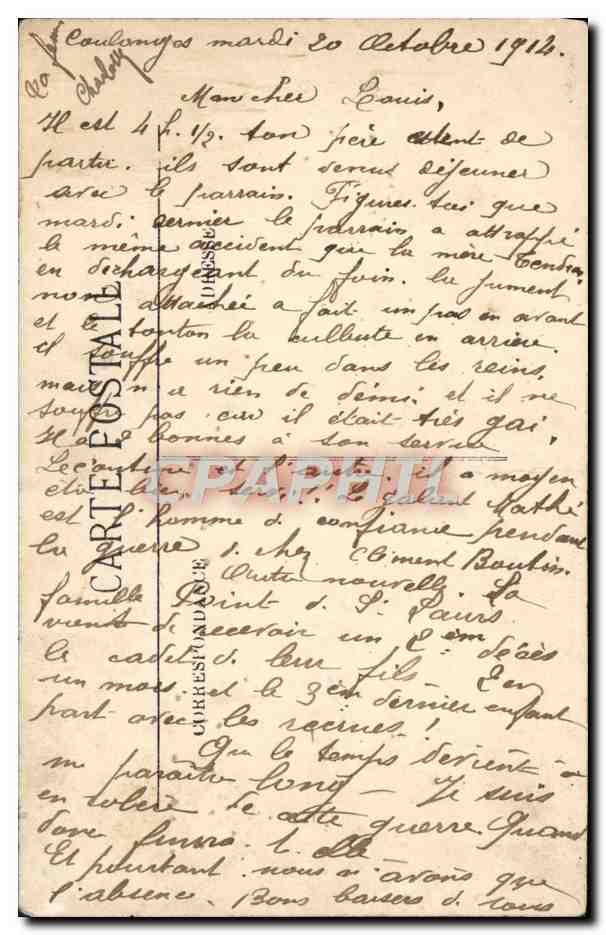 Coulonges mardi 20 Octobre 1914.
Mon cher Louis,
Il est 4 h. 1/2. ton père vient de
partir. ils sont venus déjeuner
avec le parrain. Figures-toi que
mardi dernier le parrain a attrappé
le même accident que la mère
en déchargeant du foin. la jument
non attachée a fait un pas en avant
et le tonton la culbute en arrière.
il souffre un peu dans les reins,
mais n'a rien de démis et il ne
souffre pas car il était très gai.
Il a 2 bonnes à son service
et l'autre. il a moyen
d'être bien servi!! Le galant Mathé
est l'homme de confiance pendant
la guerre chez Clément Boutin.
Autre nouvelle. La
famille Point de St Laurs
vient de recevoir un 2ème décès
le cadet de leur fils - 2 en
un mois. et le 3em dernier enfant
part avec les recrues!
Que le temps devient à
me paraître long - Je suis
en colère de cette guerre. Quand
donc finira-t-elle
Et pourtant nous n'avons que
l'absence. Bons baisers de tous
CARTE POSTALE
CORRESPONDANCE
ADRESSE
CPAPHIL